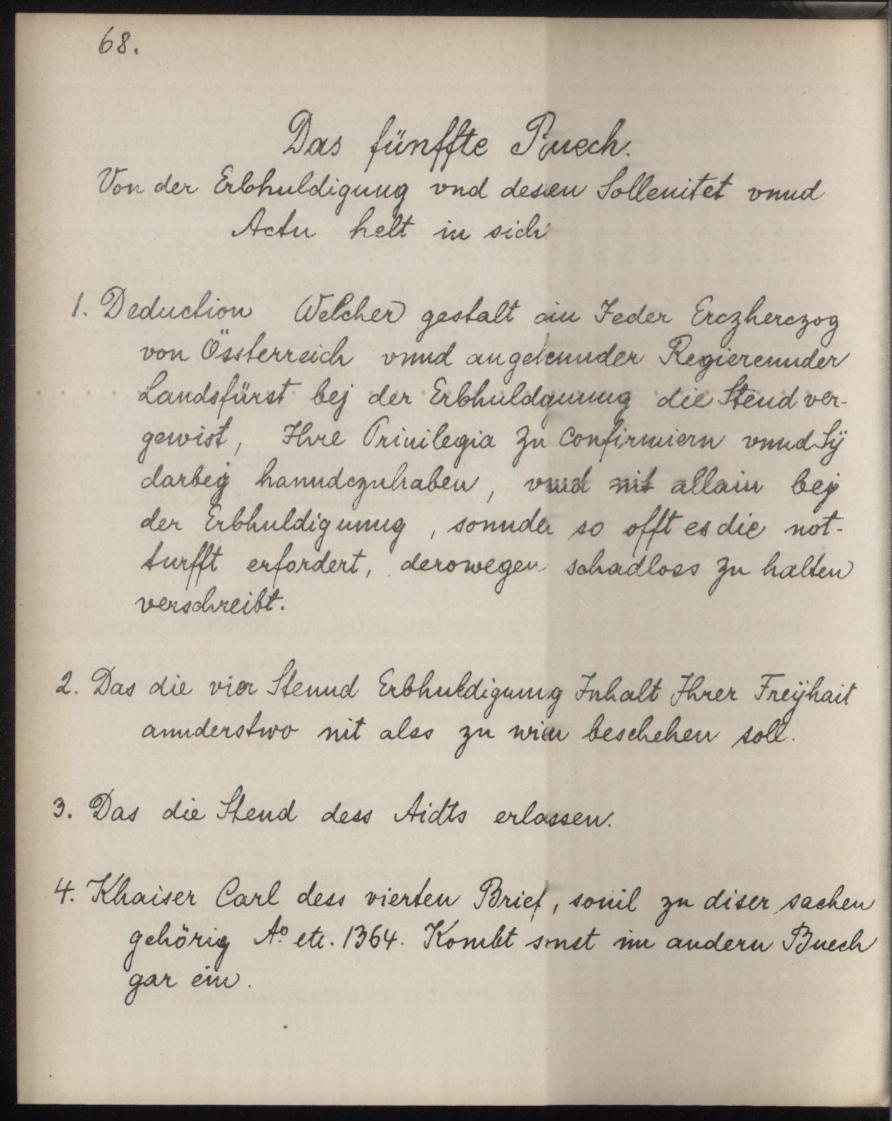 68.
Das fünffte Buech.
Von der Erbhuldigung vnd dessen Sollenitet vnnd
Actu helt in sich
1. Deduction Welcher gestalt ain Jeder Erczherczog
von Össterreich vnnd angehennder Regierennder
Landsfürst bej der Erbhuldgunng die Stend ver-
gwist, Ihre Priuilegia zu Confirmiern vnnd Sÿ
darbeÿ hanndczuhaben, vnnd nit allain beÿ
der Erbhuldigunng, sonnder so offt es die not-
turfft erfordert, derowegen schadloss zu halten
verschreibt.
2. Das die vier Stennd Erbhuldigunng Inhalt Ihrer Freÿhait
annderstwo nit alss zu wien beschehen soll.
3. Das die Stend dess Aidts erlassen.
4. Khaiser Carl dess vierten Brief, souil zu diser sachen
gehörig Aº etc. 1364. Kombt sonst im andern Buech
gar ein.